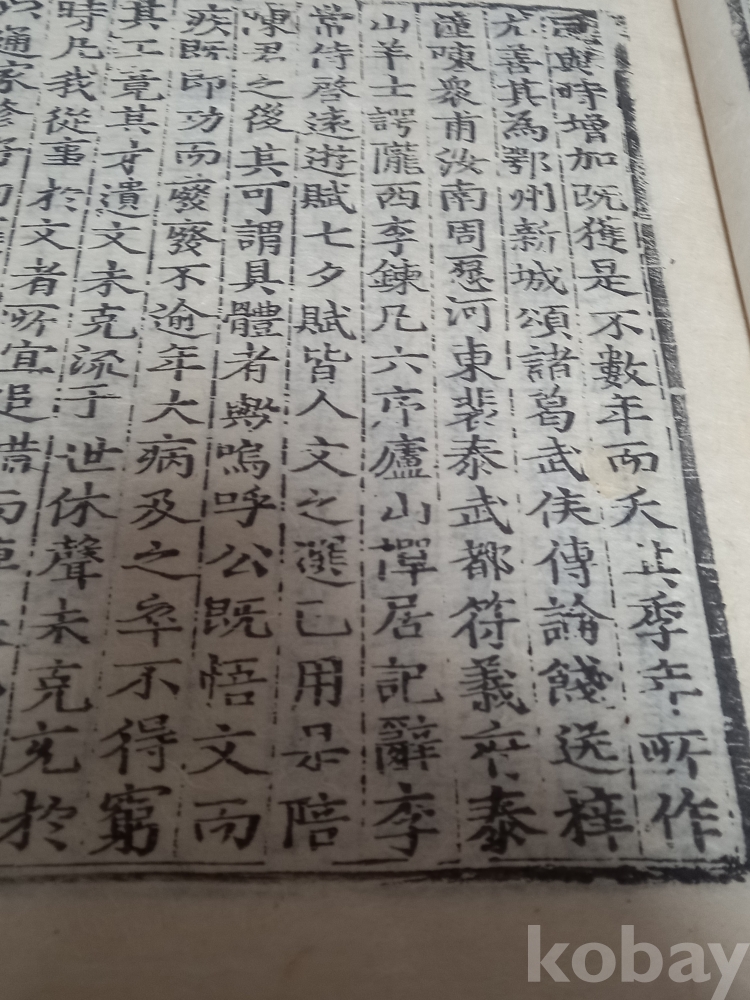 風與時増加既獲是不數年而夭其季年所作
尤善其為鄂州新城頌諸葛武侯傳論餞送梓
潼陳衆甫汝南周愿河東裴泰武都符義府泰
山羊士諤隴西李鍊凡六序廬山禪居記辭李
常侍啓遠遊賦七夕賦皆人文之選已用是陪
陳君之後其可謂具體者歟嗚呼公既悟文而
疾既即功而廢廢不逾年大病及之卒不得窮
其工竟其才遺文未克流于世休聲未克充於
時凡我從事於文者所宜追惜而
通家修好
kobay